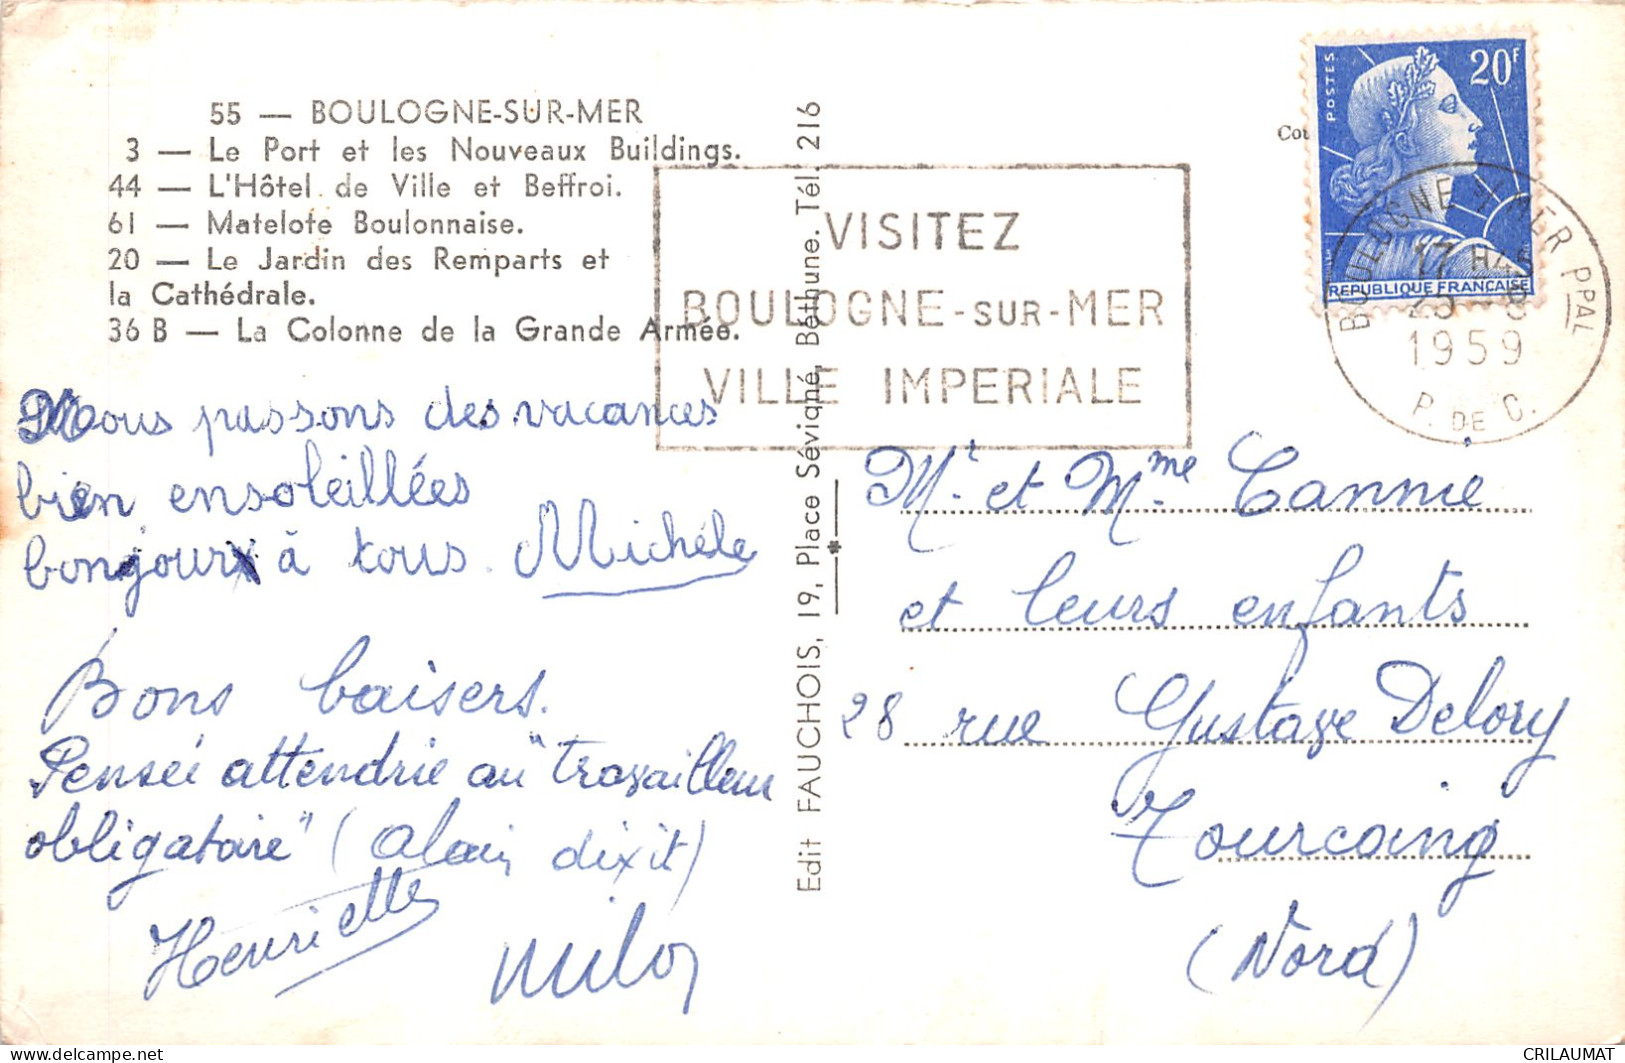 55 — BOULOGNE-SUR-MER
3 — Le Port et les Nouveaux Buildings.
44 — L'Hôtel de Ville et Beffroi.
61 — Matelote Boulonnaise.
20 — Le Jardin des Remparts et
la Cathédrale.
36 B — La Colonne de la Grande Armée.
Nous passons des vacances
bien ensoleillées
bonjour à tous. Michèle
Bons baisers.
Pensée attendrie au "travailleur
obligatoire" (Alain dixit)
Henriette
Edit FAUCHOIS, 19, Place Sévigné, Béthune. Tél. 216
VISITEZ
BOULOGNE-SUR-MER
VILLE IMPERIALE
POSTES
20F
REPUBLIQUE FRANÇAISE
BOULOGNE S/ MER PPAL
17 H45
25
1959
P. DE C.
Mr. et Mme Cannie
et leurs enfants
28 rue Gustave Delory
Tourcoing
(Nord)
delcampe.net
CRILAUMAT